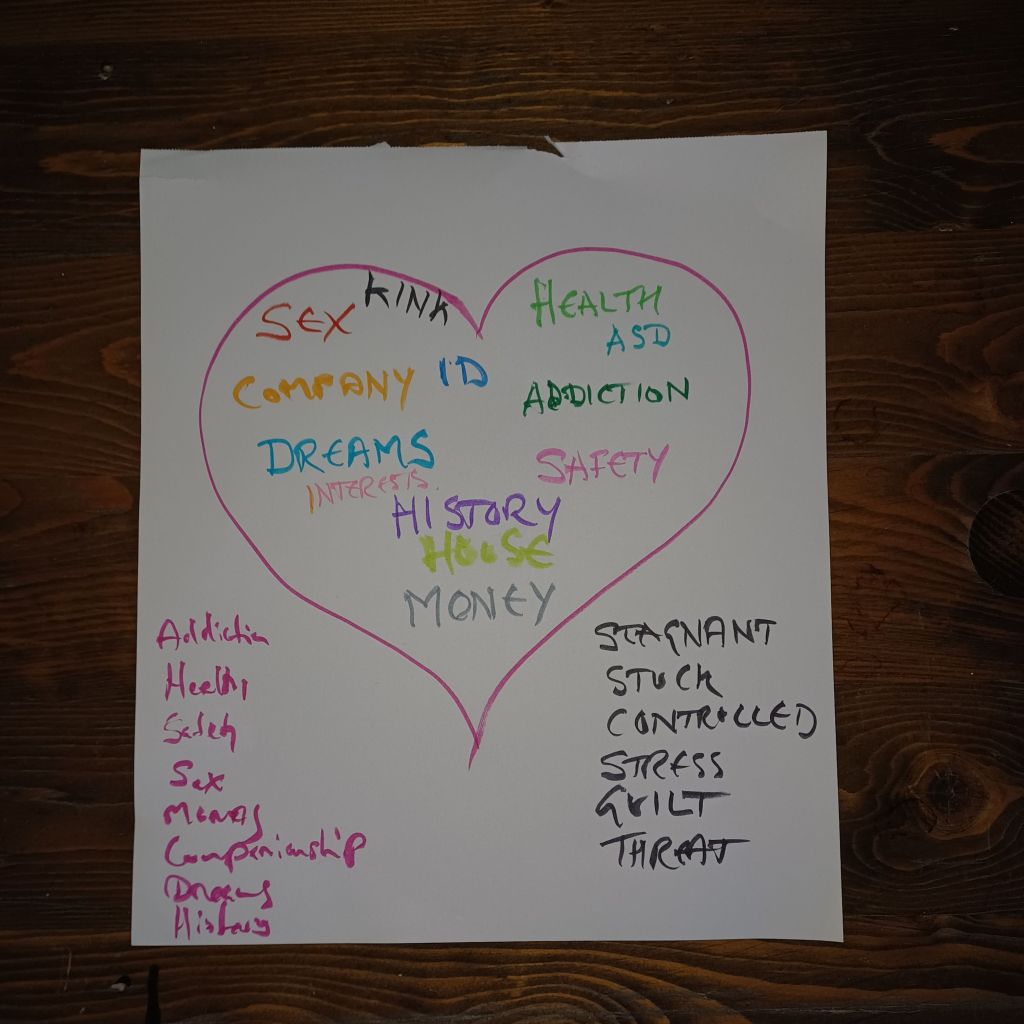 KINK
SEX
HEALTH
ASD
COMPANY ID
ADDICTION
DREAMS
SAFETY
INTERESTS
HISTORY
HOUSE
MONEY
Addiction
Health
Safety
Sex
Money
Companionship
Dreams
History
STAGNANT
STUCK
CONTROLLED
STRESS
GUILT
THREAT